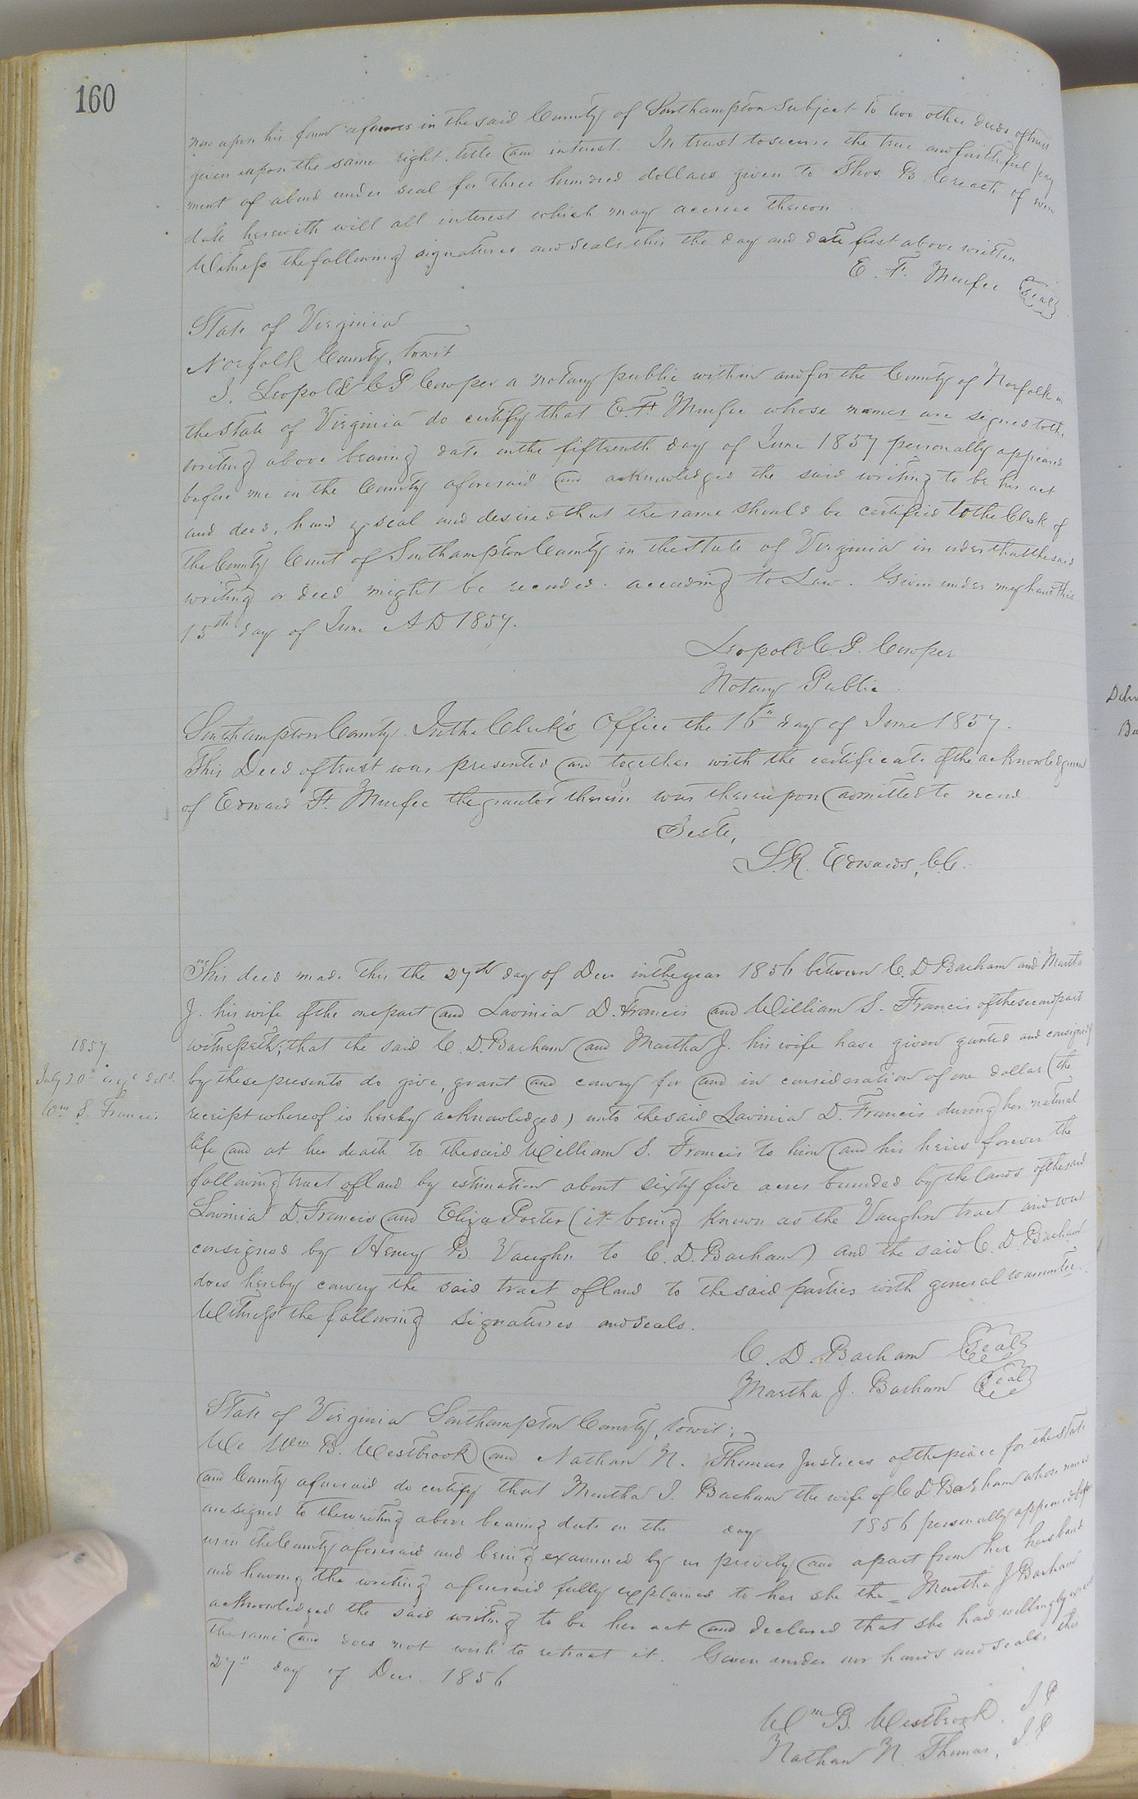 160
now upon his farm aforesaid in the said County of Southampton subject to two other deeds of trust
given upon the same right, title and interest. In trust to secure the true and faithful pay
ment of a bond under seal for three hundred dollars given to Thos. B. Creath of even
date herewith with all interest which may accrue thereon
Witness the following signatures and seals this the day and date first above written
E. F. Murfee Seal
State of Virginia
Norfolk County, towit
I, Leopold C. P. Cowper a notary public within and for the County of Norfolk in
the State of Virginia do certify that E. F. Murfee whose names are signed to the
writing above bearing date on the fifteenth day of June 1857 personally appeared
before me in the County aforesaid and acknowledged the said writing to be his act
and deed, hand & seal and desired that the same should be certified to the Clerk of
the County Court of Southampton County in the State of Virginia in order that the said
writing or deed might be recorded according to Law. Given under my hand this
15th day of June A D 1857.
Leopold C. P. Cowper
Notary Public
Southampton County In the Clerk's Office the 16th day of June 1857.
This Deed of trust was presented and together with the certificate of the acknowledgment
of Edward F. Murfee the grantor therein was thereupon admitted to record
Teste,
L. R. Edwards, C.C.
This deed made this the 27th day of Dec in the year 1856 between C. D. Barham and Martha
J. his wife of the one part and Lavinia D. Francis and William S. Francis of the second part
witnesseth; that the said C. D. Barham and Martha J. his wife have given granted and consigned
1857
July 20th
Wm S. Francis
by these presents do give, grant and convey for and in consideration of one dollar (the
receipt whereof is hereby acknowledged) unto the said Lavinia D. Francis during her natural
life and at her death to the said William S. Francis to him and his heirs forever the
following tract of land by estimation about sixty five acres bounded by the lands of the said
Lavinia D. Francis and Eliza Porter (it being known as the Vaughn tract and was
consigned by Henry B. Vaughn to C. D. Barham) and the said C. D. Barham
does hereby convey the said tract of land to the said parties with general warrantee.
Witness the following signatures and seals.
C. D. Barham Seal
Martha J. Barham Seal
State of Virginia Southampton County, towit;
We Wm B. Westbrook and Nathan N. Thomas Justices of the peace for the State
and County aforesaid do certify that Martha J. Barham the wife of C D Barham whose names
are signed to the writing above bearing date on the day 1856 personally appeared before
us in the County aforesaid and being examined by us privily and apart from her husband
and having the writing aforesaid fully explained to her she the Martha J Barham
acknowledged the said writing to be her act and declared that she had willingly
the same and does not wish to retract it. Given under our hands and seals this
27th day of Dec. 1856
Wm B. Westbrook. J P
Nathan N. Thomas, J. P.